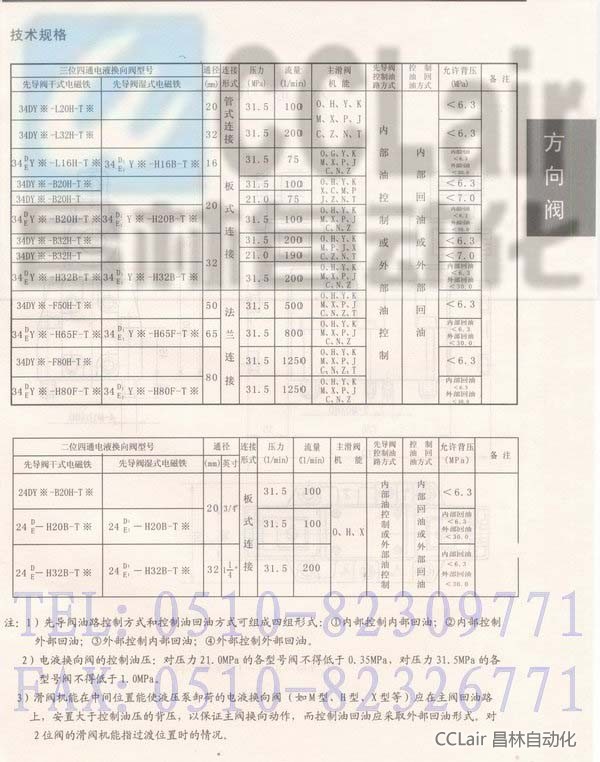 技术规格
CCLair
方向阀
三位四通电液换向阀型号 通径 连接 压力 流量 主滑阀 先导阀 控制 允许背压 备注
先导阀干式电磁铁 先导阀湿式电磁铁 (mm) 形式 (MPa) (l/min) 机能 控制油路方式 油回油方式 (MPa)
34DY※-L20H-T※ 20 管式连接 31.5 100 O、H、Y、K M、X、P、J C、Z、N、T 内部油控制或外部油控制 内部回油或外部回油 <6.3
34DY※-L32H-T※ 32 31.5 200 <6.3
34 D E Y※-L16H-T※ 34 D₁ E₁ Y※-H16B-T※ 16 板式连接 31.5 75 O、G、Y、K M、X、P、J C、N、Z 内部回油 <6.3 外部回油
34DY※-B20H-T※ 20 31.5 100 O、H、Y、K <6.3
34DY※-B20H-T※ 21.0 75 X、C、M、P J、Z、N、T <7.0
34 D E Y※-B20H-T※ 34 D₁ E₁ Y※-H20B-T※ 31.5 100 O、H、Y、K M、X、P、J C、N、Z
34DY※-B32H-T※ 32 31.5 200 O、H、Y、K <6.3
34DY※-B32H-T※ 21.0 190 M、P、J、X C、N、Z、T <7.0
34 D E Y※-H32B-T※ 34 D₁ E₁ Y※-H32B-T※ 31.5 200 O、H、Y、K M、X、P、J C、N、Z 内部回油 <6.3 外部回油 <30.0
34DY※-F50H-T※ 50 法兰连接 31.5 500 O、H、Y、K M、X、P、J C、N、Z、T <6.3
34 D E Y※-H65F-T※ 34 D₁ E₁ Y※-H65F-T※ 65 31.5 800 O、H、Y、K M、X、P、J C、N、Z 内部回油 <6.3 外部回油 <30.0
34DY※-F80H-T※ 80 31.5 1250 O、H、Y、K M、X、P、J C、N、Z、T <6.3
34 D E Y※-H80F-T※ 34 D₁ E₁ Y※-H80F-T※ 31.5 1250 O、H、Y、K M、X、P、J C、N、Z 内部回油 <6.3 外部回油
二位四通电液换向阀型号 通径 连接 压力 流量 主滑阀 先导阀 控制 允许背压 备注
先导阀干式电磁铁 先导阀湿式电磁铁 (mm) 英寸 形式 (l/min) (l/min) 机能 控制油路方式 油回油方式 (MPa)
24DY※-B20H-T※ 20 3/4" 板式连接 31.5 100 O、H、X 内部油控制或外部油控制 内部回油或外部回油 <6.3
24 D E —H20B-T※ 24 D₁ E₁ —H20B-T※ 31.5 100 内部回油 <6.3 外部回油 <30.0
24 D E —H32B-T※ 24 D₁ E₁ —H32B-T※ 32 1 1/4" 31.5 200 内部回油 <6.3 外部回油 <30.0
TEL: 0510-82309771
注: 1）先导阀油路控制方式和控制油回油方式可组成四组形式: ①内部控制内部回油; ②内部控制
外部回油; ③外部控制内部回油; ④外部控制外部回油。
2）电液换向阀的控制油压: 对压力21.0MPa的各型号阀不得低于0.35MPa, 对压力31.5MPa的各
型号阀不得低于1.0MPa。
FAX: 0510-82326771
3）滑阀机能在中间位置能使液压泵卸荷的电液换向阀（如M型、H型、X型等）应在主阀回油路
上, 安置大于控制油压的背压, 以保证主阀换向动作, 而控制油回油应采取外部回油形式。对
2位阀的滑阀机能指过渡位置时的情况。
CCLair 昌林自动化